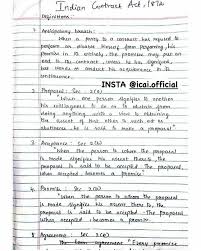 Indian Contract Act, 1872
Definitions:
1. Anticipatory breach:
When a party to a contract has refused to
perform or disable himself from performing, his
promise in its entirety, the promisee may put an
end to the contract, unless he has signified,
by words or conduct his acquiescence in its
continuance.
INSTA @icai.official
2. Proposal: Sec 2(a)
When one person signifies to another
his willingness to do or to abstain from
doing anything, with a view to obtaining
the assent of that other to such act or
abstinence, he is said to make a proposal"
3. Acceptance: Sec 2(b)
"When the person to whom the proposal
is made, signifies his assent thereto, the
proposal is said to be accepted. The proposal,
when accepted, becomes a promise".
4. Promise: Sec 2(b)
"When the person to whom the proposal
is made signifies his assent thereto, the
proposal is said to be accepted. The proposal
when accepted becomes a promise
5. Agreement: Sec 2(e)
"Every promise